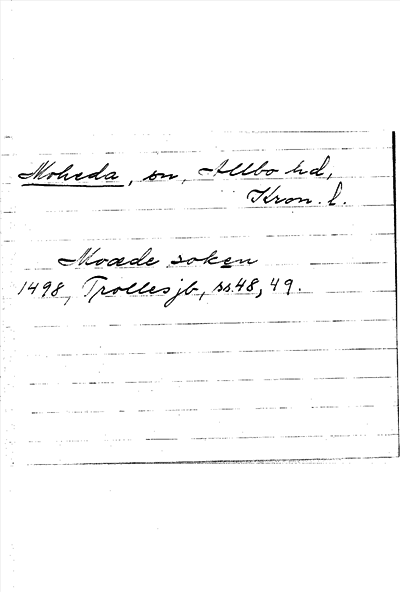 Moheda, sn, Allbo hd,
Kron. l.
Moæde soken
1498, Trolles jb, ss. 48, 49.